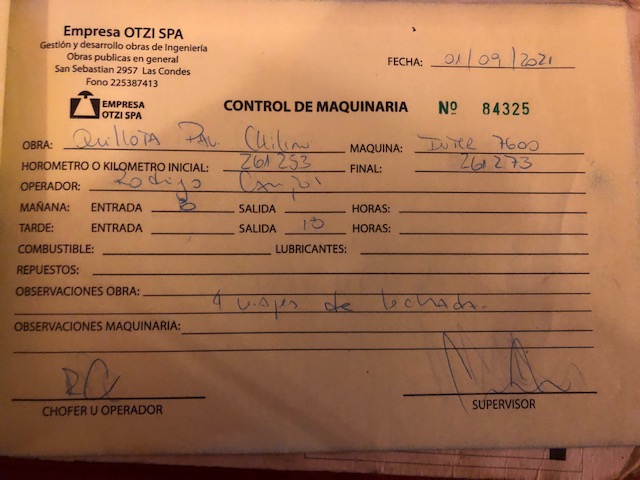 Empresa OTZI SPA
Gestión y desarrollo obras de Ingeniería
Obras publicas en general
San Sebastian 2957 Las Condes
Fono 225387413
FECHA: 01/09/2021
EMPRESA OTZI SPA
CONTROL DE MAQUINARIA Nº 84325
OBRA: Quillota Pav. MAQUINA: 7600
HOROMETRO O KILOMETRO INICIAL: 261253 FINAL: 261273
OPERADOR: Rodrigo
MAÑANA: ENTRADA 8 SALIDA HORAS:
TARDE: ENTRADA SALIDA HORAS:
COMBUSTIBLE: LUBRICANTES:
REPUESTOS:
OBSERVACIONES OBRA: 4 viajes de lechada.
OBSERVACIONES MAQUINARIA:
CHOFER U OPERADOR
SUPERVISOR